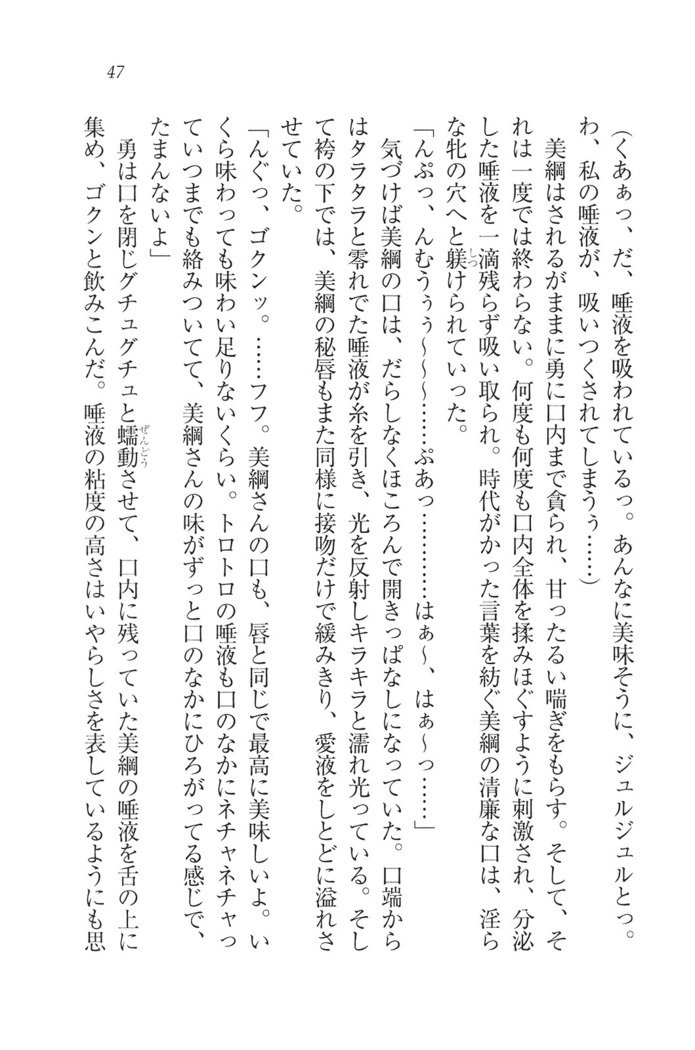 47
（くあぁっ、だ、唾液を吸われているっ。あんなに美味そうに、ジュルジュルとっ。
わ、私の唾液が、吸いつくされてしまうぅ……）
　美綱はされるがままに勇に口内まで貪られ、甘ったるい喘ぎをもらす。そして、そ
れは一度では終わらない。何度も何度も口内全体を揉みほぐすように刺激され、分泌
した唾液を一滴残らず吸い取られ。時代がかった言葉を紡ぐ美綱の清廉な口は、淫ら
な牝の穴へと躾けられていった。
「んぷっ、んむうぅぅ〜〜〜……ぷあっ…………はぁ〜、はぁ〜っ……」
　気づけば美綱の口は、だらしなくほころんで開きっぱなしになっていた。口端から
はタラタラと零れでた唾液が糸を引き、光を反射しキラキラと濡れ光っている。そし
て袴の下では、美綱の秘唇もまた同様に接吻だけで緩みきり、愛液をしとどに溢れさ
せていた。
「んぐっ、ゴクンッ。……フフ。美綱さんの口も、唇と同じで最高に美味しいよ。い
くら味わっても味わい足りないくらい。トロトロの唾液も口のなかにネチャネチャっ
ていつまでも絡みついてて、美綱さんの味がずっと口のなかにひろがってる感じで、
たまんないよ」
　勇は口を閉じグチュグチュと蠕動させて、口内に残っていた美綱の唾液を舌の上に
集め、ゴクンと飲みこんだ。唾液の粘度の高さはいやらしさを表しているようにも思
しつ
ぜんどう